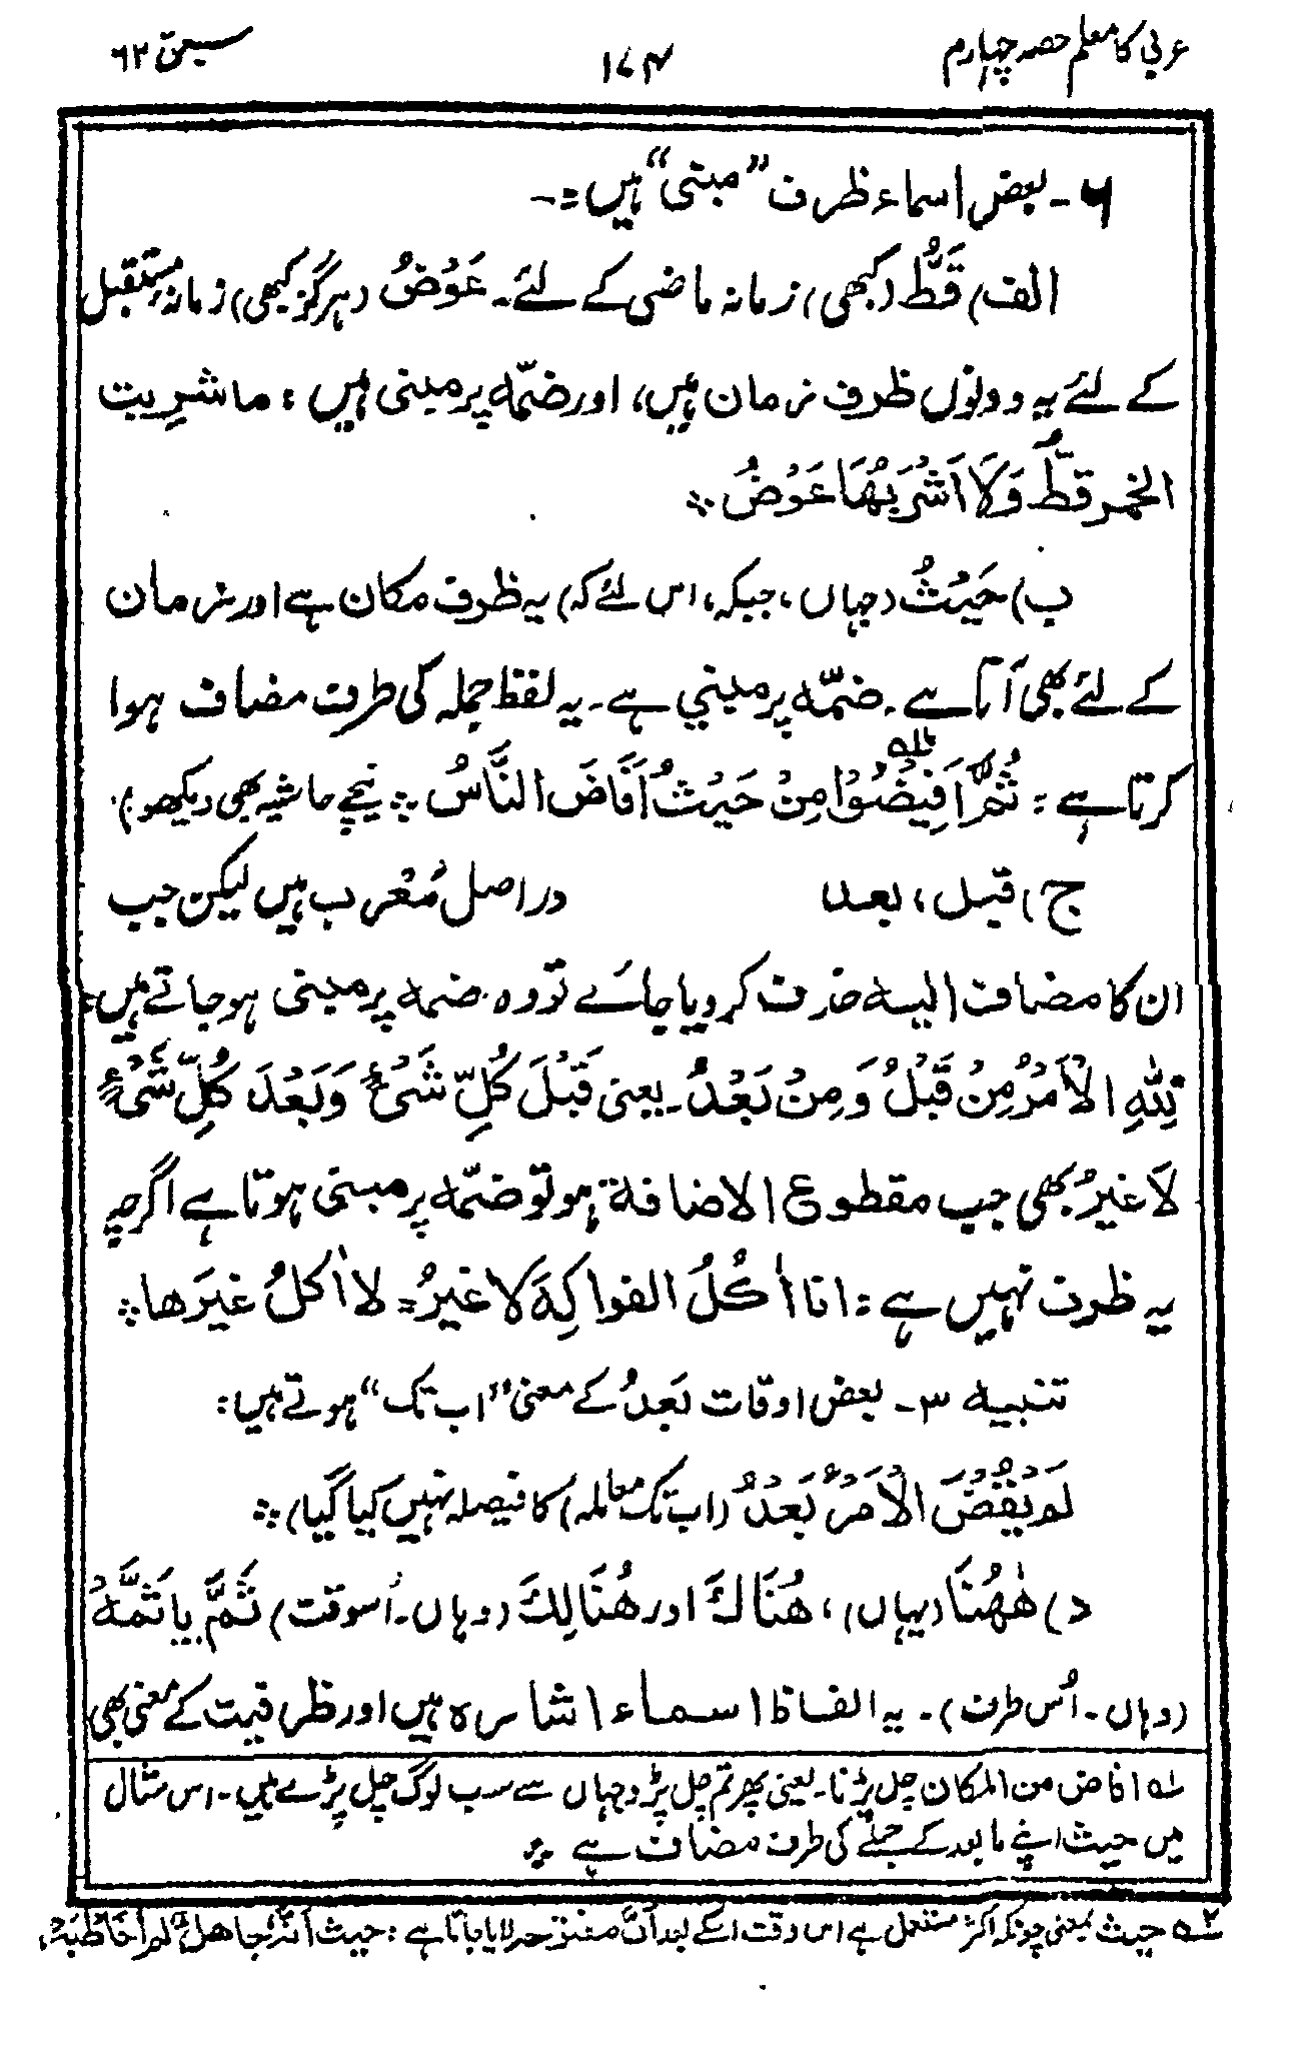 عربی کا معلم حصہ چہارم
۱۷۴
سبق ۶۲
۶ ۔ بعض اسماء ظرف ”مبنی“ ہیں :۔
الف) قَطُّ (کبھی) زمانہ ماضی کے لئے۔ عَوْضُ (ہرگز کبھی) زمانہ مستقبل
کے لئے یہ دونوں ظرف زمان ہیں، اور ضمّہ پر مبنی ہیں : ما شرِبت
الخمر قطُّ وَلَا اَشْرَبُهَا عَوْضُ ؞
ب) حَيْثُ (جہاں، جبکہ، اس لئے کہ) یہ ظرف مکان ہے اور زمان
کے لئے بھی آتا ہے۔ ضمّہ پر مبنی ہے۔ یہ لفظ جملہ کی طرف مضاف ہوا
کرتا ہے : ثُمَّ اَفِيْضُوْا ؎۱ مِنْ حَيْثُ اَفَاضَ النَّاسُ ؞ نیچے حاشیہ بھی دیکھو)
ج) قبل، بعد دراصل مُعْرب ہیں لیکن جب
ان کا مضاف الیہ حذف کر دیا جائے تو وہ ضمہ پر مبنی ہو جاتے ہیں :
لِلّٰهِ الْاَمْرُ مِنْ قَبْلُ وَمِنْ بَعْدُ۔ یعنی قَبْلَ كُلِّ شَیْءٍ وَبَعْدَ كُلِّ شَیْءٍ
لَا غیرُ بھی جب مقطوع الاضافة ہو تو ضمّہ پر مبنی ہوتا ہے اگرچہ
یہ ظرف نہیں ہے : انا اٰكُلُ الفواكِهَ لا غیرُ = لا اٰكلُ غیرَها ؞
تنبیہ ۳۔ بعض اوقات بَعدُ کے معنی ”اب تک“ ہوتے ہیں :
لَمْ يُقْضَ الْاَمْرُ بَعْدُ (اب تک معاملہ) کا فیصلہ نہیں کیا گیا) ؞
د) هٰهُنَا (یہاں)، هُنَاكَ اور هُنَالِكَ (وہاں۔ اُسوقت) ثَمَّ یا ثَمَّهْ
(وہاں۔ اُس طرف)۔ یہ الفاظ اسماء اشارہ ہیں اور ظرفیت کے معنی بھی
؎۱ افاض من المکان چل پڑنا۔ یعنی پھر تم چل پڑو جہاں سے سب لوگ چل پڑے ہیں۔ اس مثال
میں حیث اپنے مابعد کے جملے کی طرف مضاف ہے ؞
؎۲ حیث بمعنی چونکہ اکثر مستعمل ہے اس وقت اسکے بعد اَنَّ مفتوحہ لایا جاتا ہے : حیث اَنَّهُ جاهلٌ لم اُخَاطِبْهُ ؞